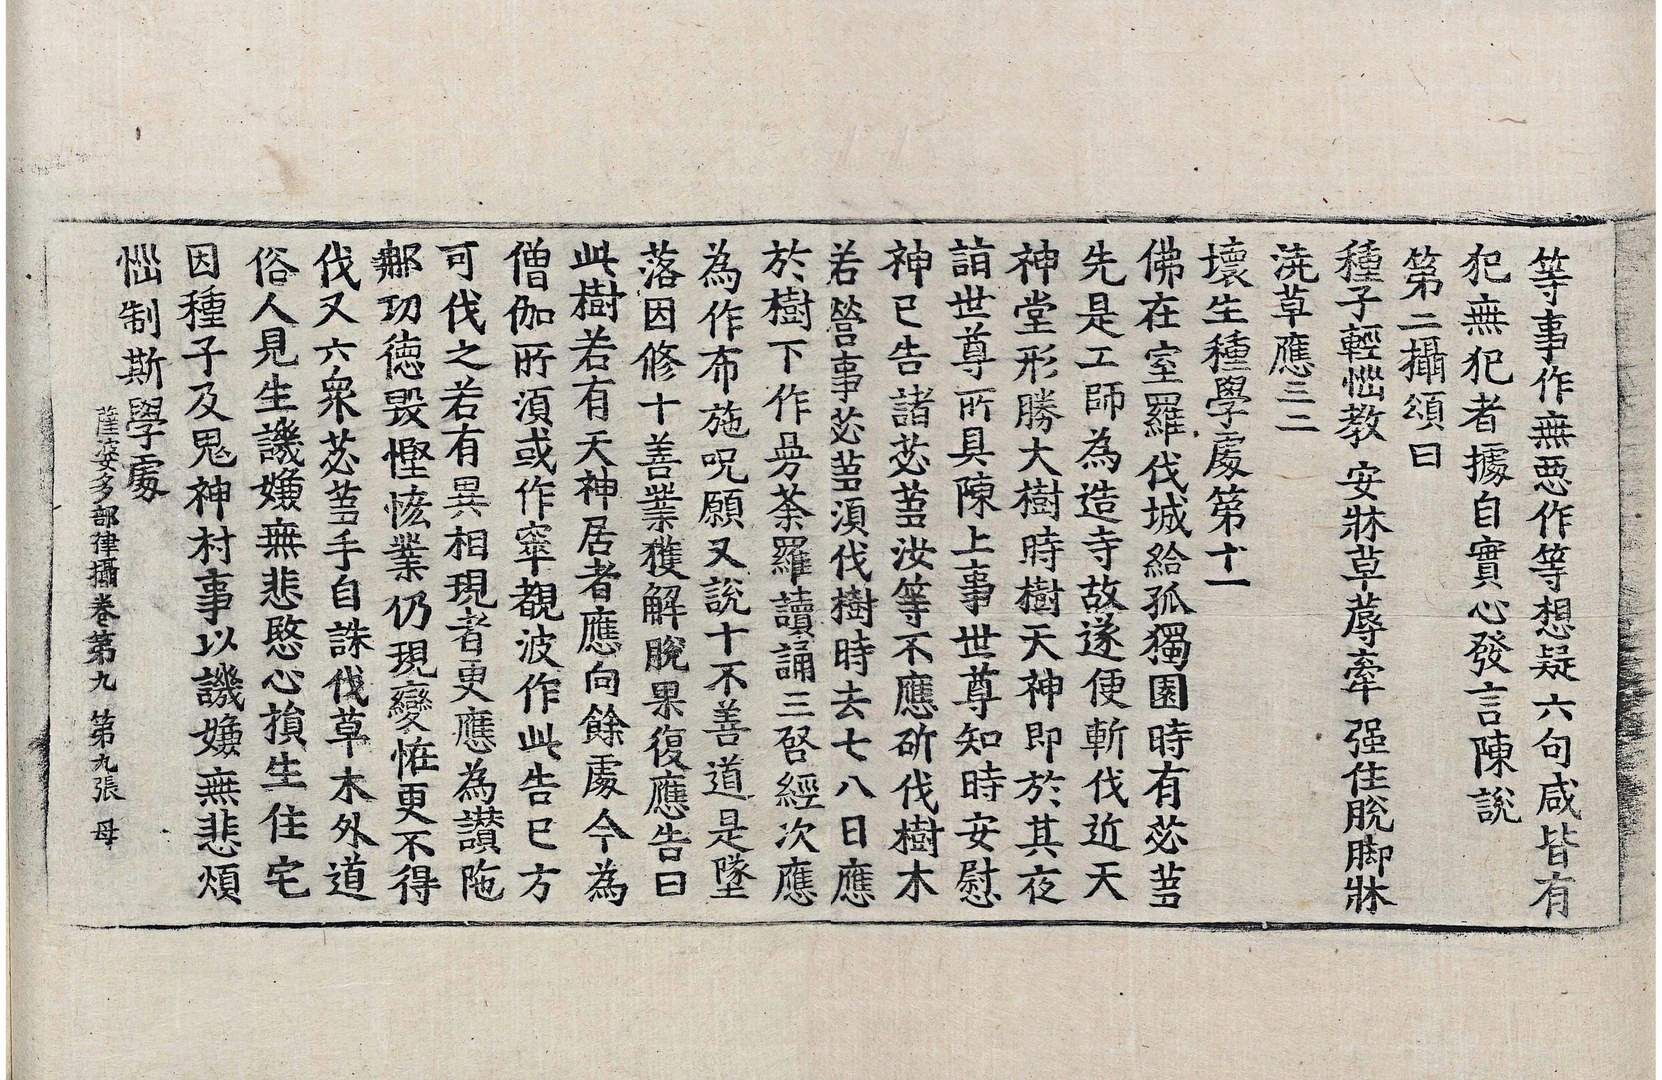 等事作無惡作等想疑六句咸皆有
犯無犯者據自實心發言陳說
第二攝頌曰
種子輕惱教 安牀草蓐牽 强住脫脚牀
澆草應三二
壞生種學處第十一
佛在室羅伐城給孤獨園時有苾芻
先是工師為造寺故遂便斬伐近天
神堂形勝大樹時樹天神即於其夜
詣世尊所具陳上事世尊知時安慰
神已告諸苾芻汝等不應斫伐樹木
若營事苾芻須伐樹時去七八日應
於樹下作曼荼羅讀誦三啓經次應
為作布施呪願又說十不善道是墜
落因修十善業獲解脫果復應告曰
此樹若有天神居者應向餘處今為
僧伽所須或作窣覩波作此告已方
可伐之若有異相現者更應為讚陁
郍功德毀慳恡業仍現變恠更不得
伐又六衆苾芻手自誅伐草木外道
俗人見生譏嫌無悲愍心損生住宅
因種子及鬼神村事以譏嫌無悲煩
惱制斯學處
薩婆多部律攝卷第九 第九張 母